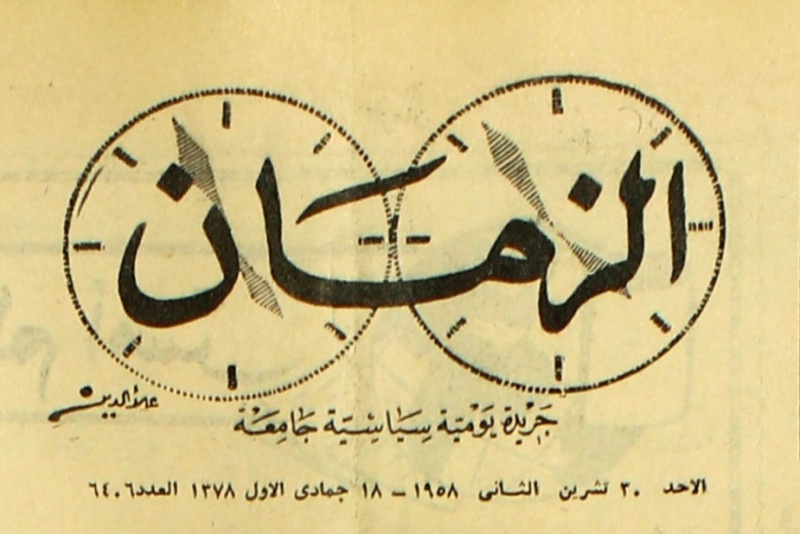 الزمان
جريدة يومية سياسية جامعة
علاء الدين
الاحد ٣٠ تشرين الثانى ١٩٥٨ – ١٨ جمادى الاول ١٣٧٨ العدد ٦٤٠٦